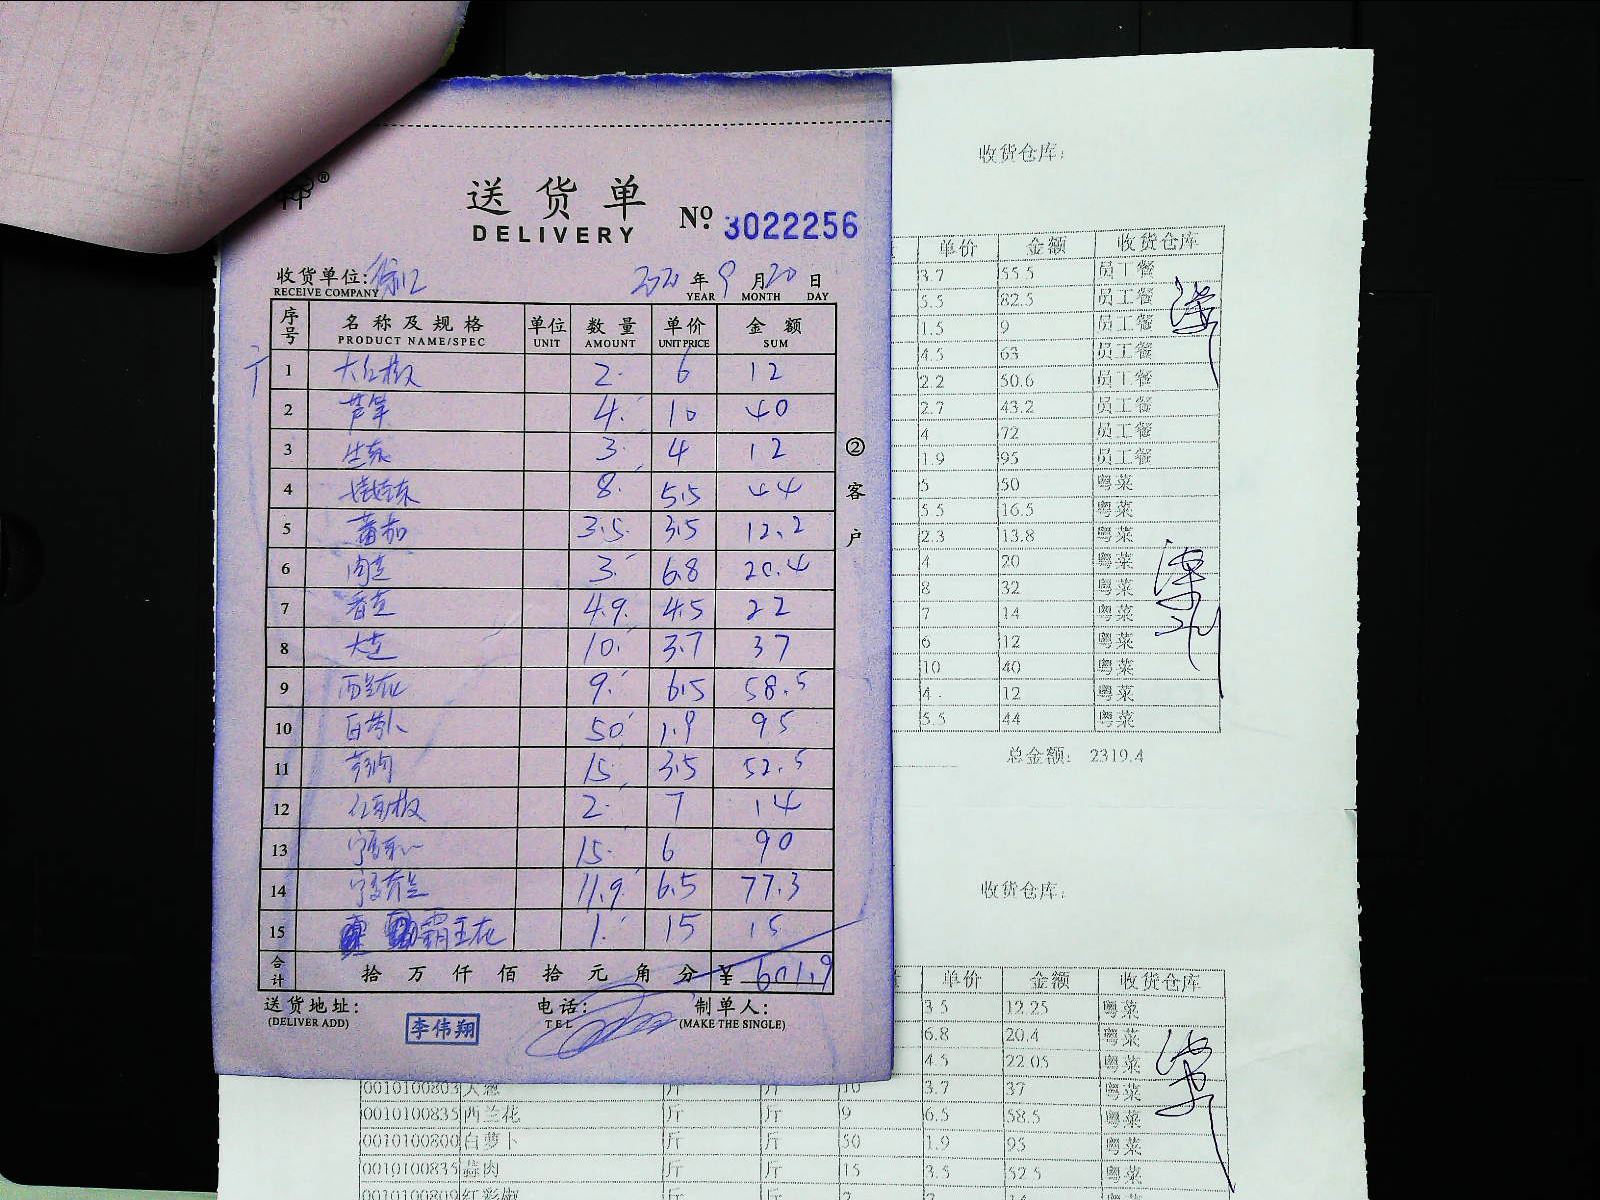 送货单
DELIVERY
№ 3022256
收货单位:徐汇 2020年9月20日
RECEIVE COMPANY YEAR MONTH DAY
序号 名称及规格 单位 数量 单价 金额
PRODUCT NAME/SPEC UNIT AMOUNT UNIT PRICE SUM
1 大红椒 2 6 12
2 芦笋 4 10 40
3 生菜 3 4 12
4 娃娃菜 8 5.5 44
5 蕃茄 3.5 3.5 12.2
6 肉 3 6.8 20.4
7 香 4.9 4.5 22
8 大 10 3.7 37
9 西兰花 9 6.5 58.5
10 白萝卜 50 1.9 95
11 15 3.5 52.5
12 2 7 14
13 15 6 90
14 11.9 6.5 77.3
15 霸王花 1 15 15
合计 拾万仟佰拾元角分 ¥ 601.9
送货地址: 电话: 制单人:
(DELIVER ADD) TEL (MAKE THE SINGLE)
李伟翔
②客户
收货仓库:
单价 金额 收货仓库
3.7 55.5 员工餐
5.5 82.5 员工餐
1.5 9 员工餐
4.5 63 员工餐
2.2 50.6 员工餐
2.7 43.2 员工餐
4 72 员工餐
1.9 95 员工餐
5 50 粤菜
5.5 16.5 粤菜
2.3 13.8 粤菜
4 20 粤菜
8 32 粤菜
7 14 粤菜
6 12 粤菜
10 40 粤菜
4 12 粤菜
5.5 44 粤菜
总金额: 2319.4
收货仓库:
单价 金额 收货仓库
3.5 12.25 粤菜
6.8 20.4 粤菜
4.5 22.05 粤菜
0010100803 大葱 斤 斤 10 3.7 37 粤菜
0010100835 西兰花 斤 斤 9 6.5 58.5 粤菜
0010100800 白萝卜 斤 斤 50 1.9 95 粤菜
0010100835 蒜肉 斤 斤 15 3.5 52.5 粤菜